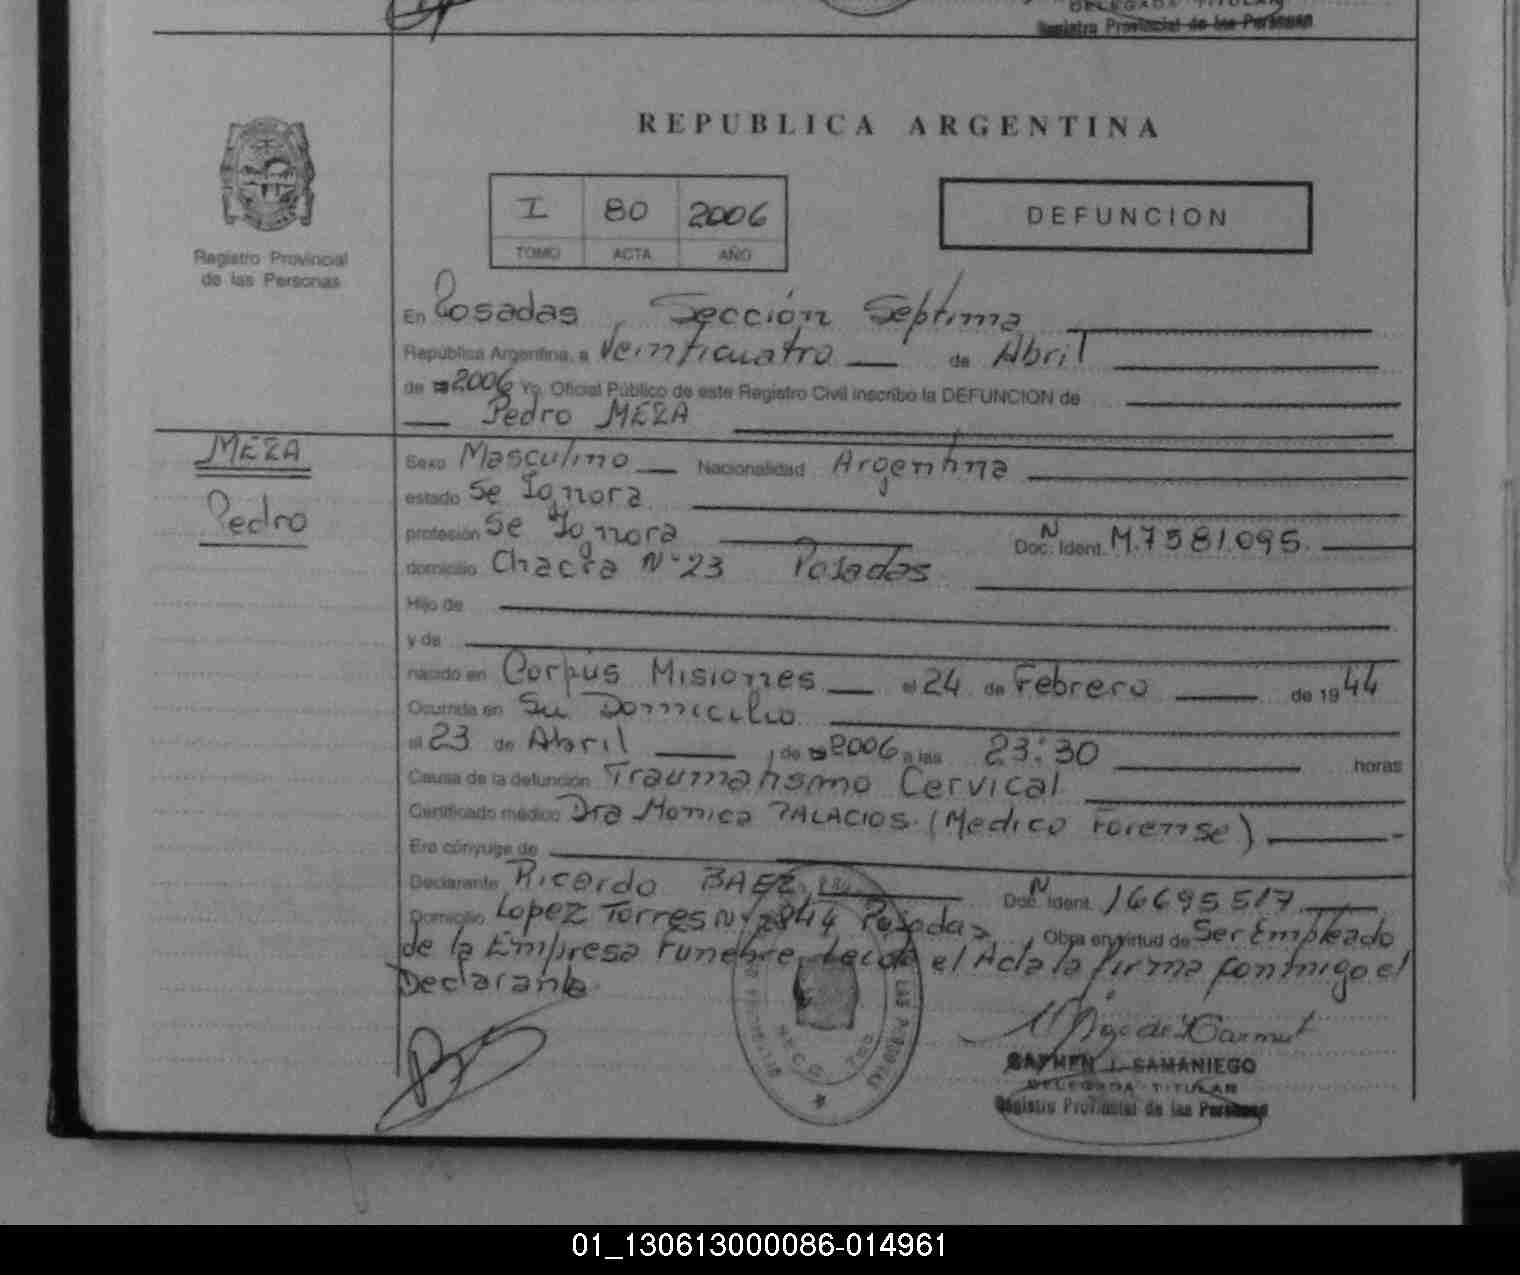 DELEGADA TITULAR
Registro Provincial de las Personas
REPUBLICA ARGENTINA
I 80 2006
TOMO ACTA AÑO
DEFUNCION
Registro Provincial
de las Personas
En Posadas Sección Septima
República Argentina, a Veinticuatro de Abril
de 2006 Yo, Oficial Público de este Registro Civil inscribo la DEFUNCION de
Pedro MEZA
MEZA
Pedro
Sexo Masculino Nacionalidad Argentina
estado Se Ignora
profesión Se Ignora Doc. Ident. N M.7581.095.
domicilio Chacra N° 23 Posadas
Hijo de
y de
nacido en Corpus Misiones el 24 de Febrero de 1944
Ocurrida en Su Domicilio
el 23 de Abril de 2006 a las 23:30 horas
Causa de la defunción Traumatismo Cervical
Certificado médico Dra Monica PALACIOS. (Medico Forense)
Era cónyuge de
Declarante Ricardo BAEZ Doc. Ident. N 16695517
Domicilio Lopez Torres N° 2844 Posadas Obra en virtud de Ser Empleado
de la Empresa Funebre Leida el Acta la firma conmigo el
Declarante
CARMEN I. SAMANIEGO
DELEGADA TITULAR
Registro Provincial de las Personas
01_130613000086-014961